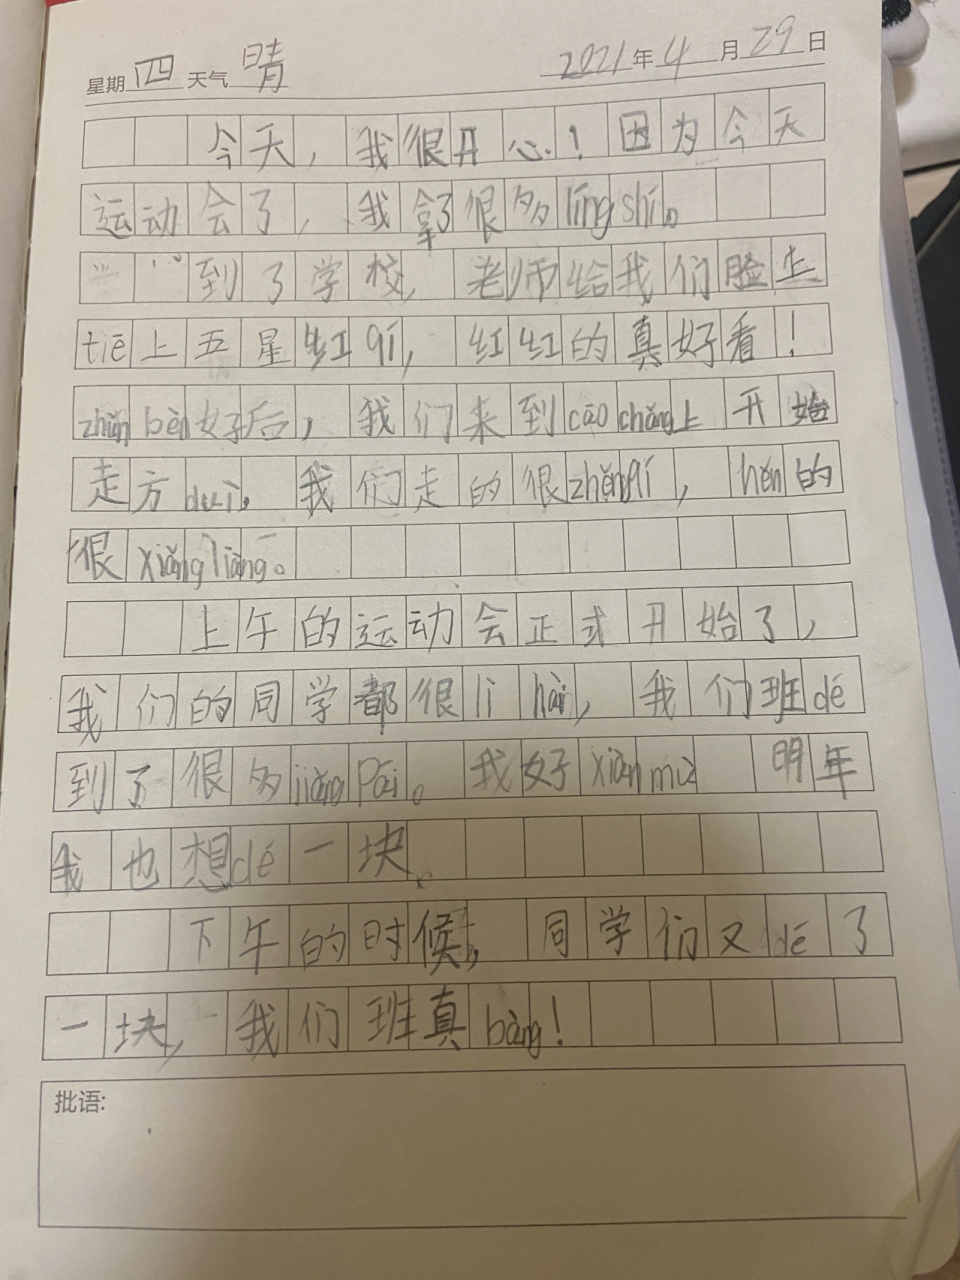 星期四天气晴 2021年4月29日
今天,我很开心!因为今天
运动会了,我拿了很多língshí。
到了学校,老师给我们脸上
tiē上五星红qí,红红的真好看!
zhǔnbèn好后,我们来到cāochǎng上开始
走方duì,我们走的很zhěngqí,hén的
很xiǎngliàng。
上午的运动会正式开始了,
我们的同学都很lì hài,我们班dé
到了很多jiǎngpái。我好xiànmù 明年
我也想dé一块、
下午的时候,同学们又dé了
一块,我们班真bàng!
批语: